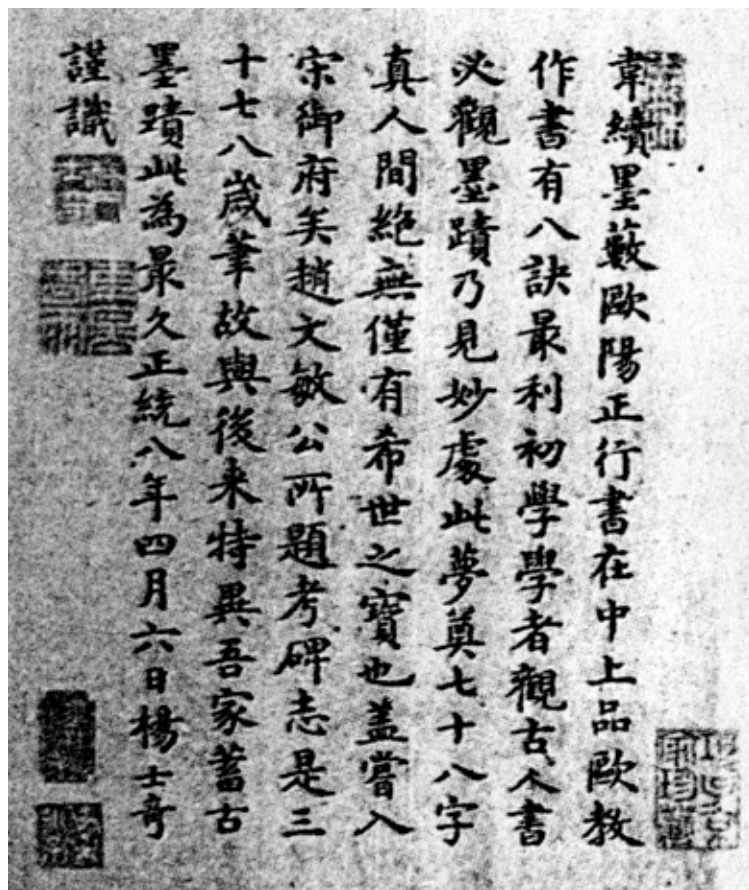 韋續墨藪歐陽正行書在中上品歐教
作書有八訣最利初學學者觀古人書
必觀墨蹟乃見妙處此夢奠七十八字
真人間絕無僅有希世之寶也蓋嘗入
宋御府矣趙文敏公所題考碑志是三
十七八歲筆故與後来特異吾家蓄古
墨蹟此為最久正統八年四月六日楊士奇
謹識